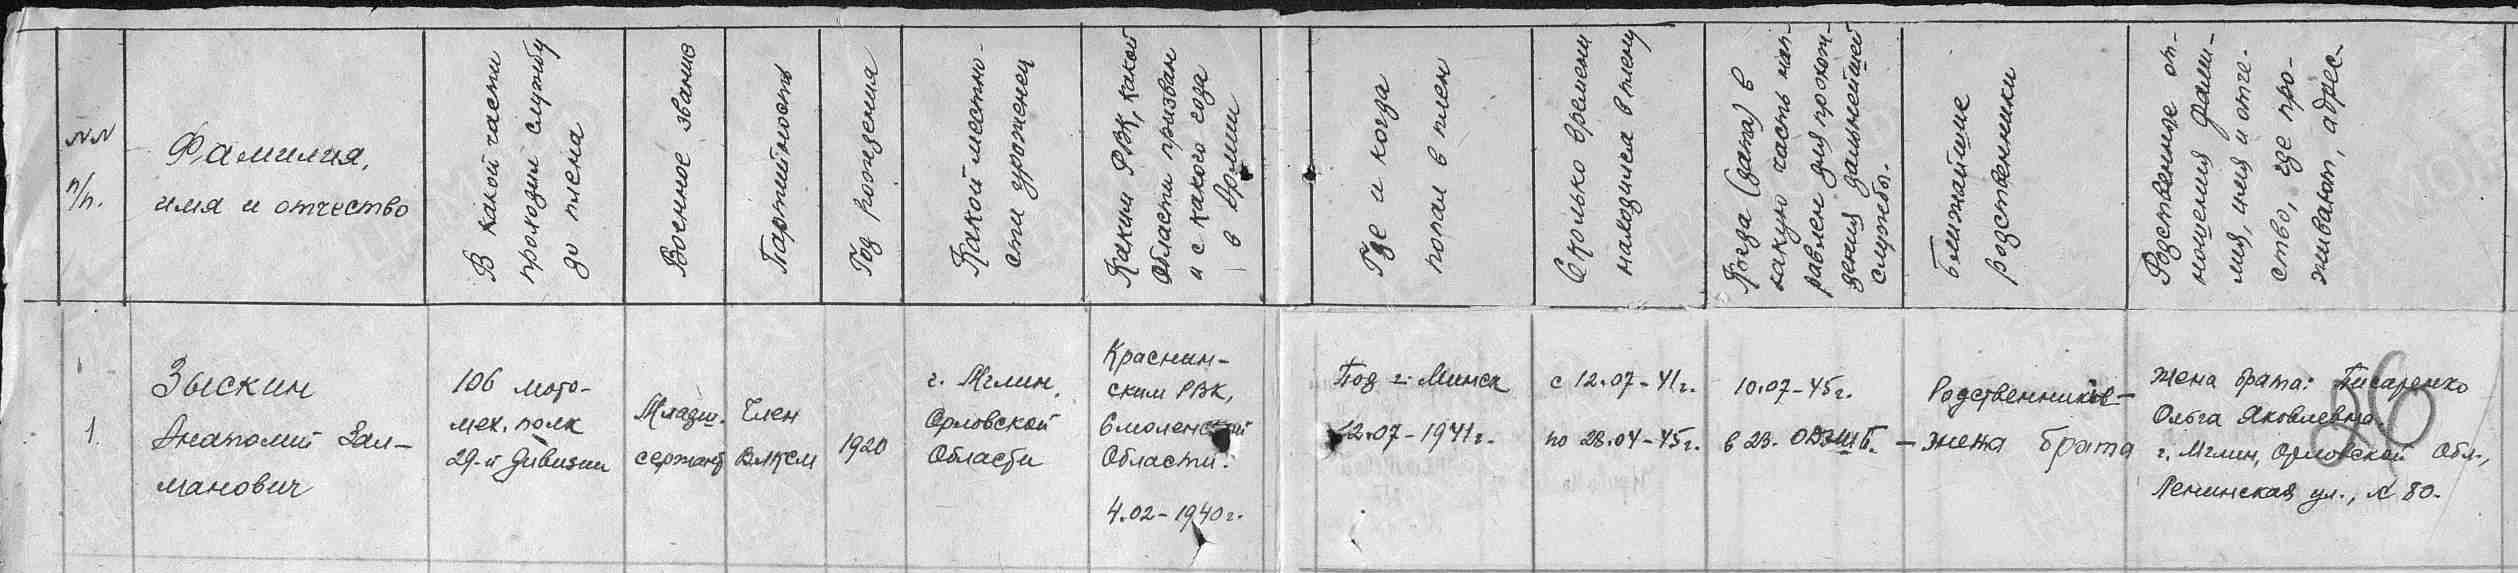 NN
п/п.
Фамилия,
имя и отчество
В какой части
проходил службу
до плена
Военное звание
Партийность
Год рождения
Какой местно-
сти уроженец
Каким РВК, какой
области призван
и с какого года
в Армии
Где и когда
попал в плен
Сколько времени
находился в плену
Когда (дата) в
какую часть нап-
равлен для прохож-
дения дальнейшей
службы.
Ближайшие
родственники
Родственные от-
ношения, фами-
лия, имя и отче-
ство, где про-
живают, адрес
1.
Зыскин
Анатолий Зал-
манович
106 мото-
мех. полк
29-й дивизии
Младш.
сержант
Член
ВЛКСМ
1920
г. Мглин,
Орловской
Области
Краснин-
ским РВК,
Смоленской
Области.
4.02-1940г.
Под г. Минск
12.07-1941г.
с 12.07-41г.
по 28.04-45г.
10.07-45г.
в 23.
Родственники-
- жена брата
Жена брата: Писаренко
Ольга Яковлевна,
г. Мглин, Орловской Обл.,
Ленинская ул., № 80.
26